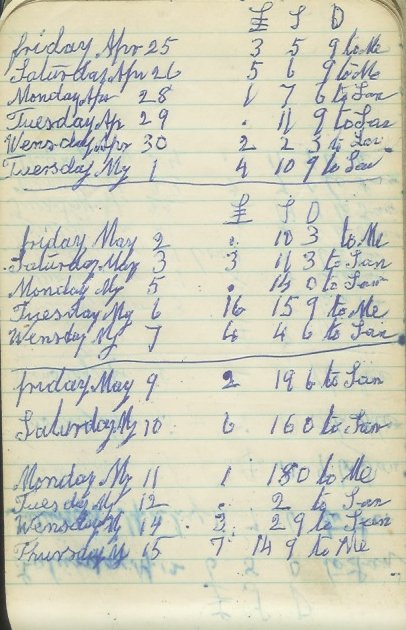 £ S D
friday Apr 25 3 5 9 to Me
Saturday Apr 26 5 6 9 to Me
Monday Apr 28 1 7 6 to San
Tuesday Ap 29 . 11 9 to San
Wensday Apr 30 2 2 3 to San
Tuersday My 1 4 10 9 to San
£ S D
friday May 2 . 10 3 to Me
Saturday May 3 3 11 3 to San
Monday My 5 . 14 0 to San
Tuesday My 6 16 15 9 to Me
Wensday My 7 4 4 6 to San
friday May 9 2 19 6 to San
Saturday My 10 6 16 0 to San
Monday My 11 1 18 0 to Me
Tuesday My 12 . 2 to San
Wensday My 14 3 2 9 to San
Thursday M 15 7 14 9 to Me